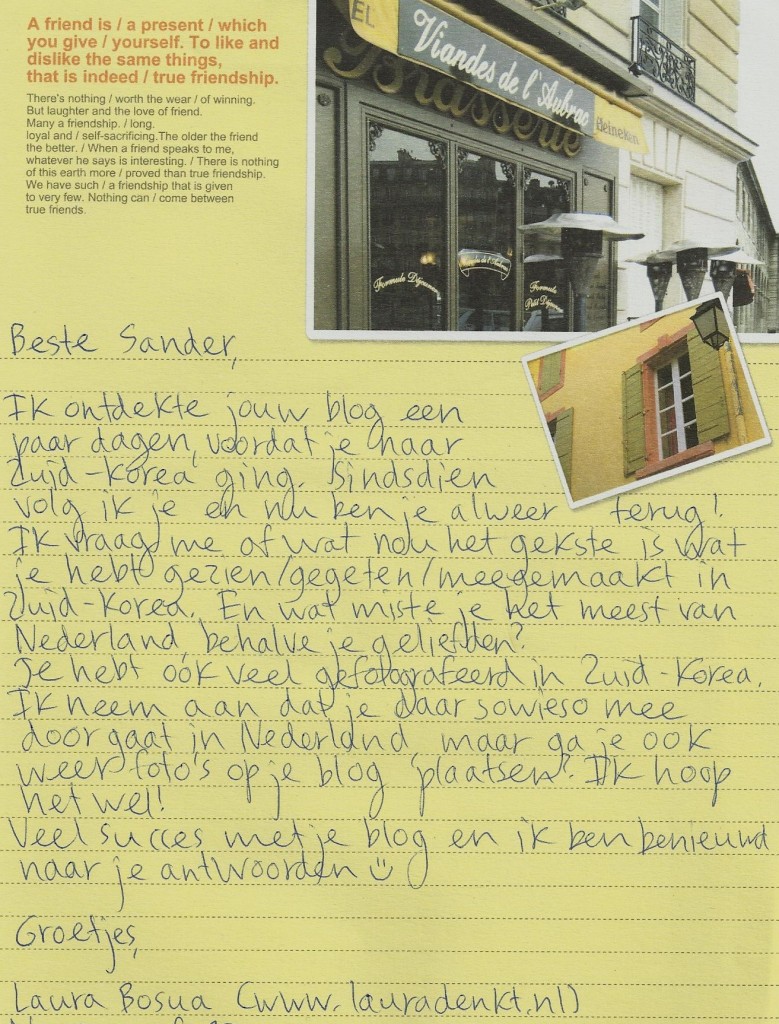 A friend is / a present / which
you give / yourself. To like and
dislike the same things,
that is indeed / true friendship.
There's nothing / worth the wear / of winning.
But laughter and the love of friend.
Many a friendship. / long.
loyal and / self-sacrificing.The older the friend
the better. / When a friend speaks to me,
whatever he says is interesting. / There is nothing
of this earth more / proved than true friendship.
We have such / a friendship that is given
to very few. Nothing can / come between
true friends.
EL
Viandes de l'Aubrac
Brasserie
Heineken
Formule Déjeuner
Viandes de l'Aubrac
Formule
Petit Déjeuner
Beste Sander,
Ik ontdekte jouw blog een
paar dagen, voordat je naar
Zuid-Korea ging. Sindsdien
volg ik je en nu ben je alweer terug!
Ik vraag me af wat nou het gekste is wat
je hebt gezien/gegeten/meegemaakt in
Zuid-Korea. En wat miste je het meest van
Nederland, behalve je geliefden?
Je hebt ook veel gefotografeerd in Zuid-Korea.
Ik neem aan dat je daar sowieso mee
door gaat in Nederland, maar ga je ook
weer foto's op je blog plaatsen? Ik hoop
het wel!
Veel succes met je blog en ik ben benieuwd
naar je antwoorden
Groetjes,
Laura Bosua (www.lauradenkt.nl)